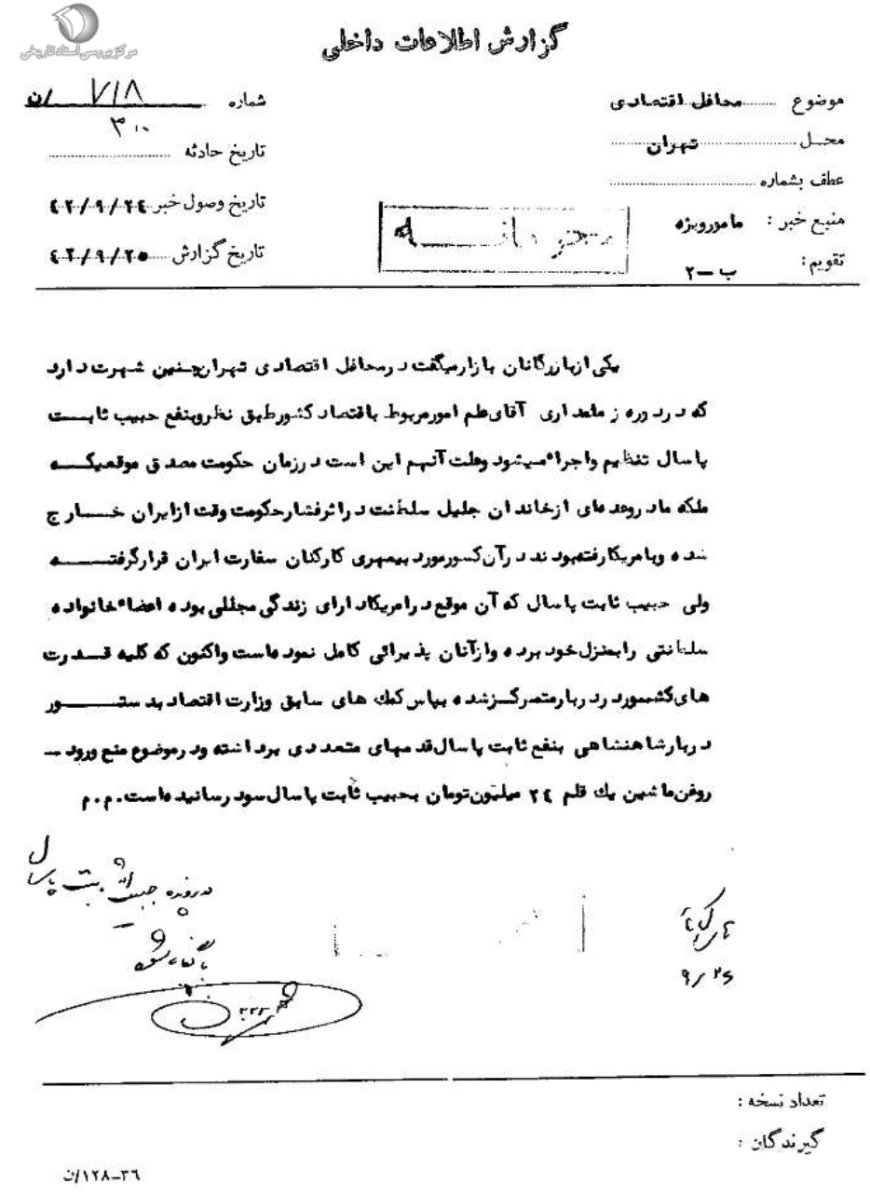 مرکز بررسی اسناد تاریخی
گزارش اطلاعات داخلی
موضوع محافل اقتصادی
محل تهران
عطف بشماره
منبع خبر : مامورویژه
تقویم: ب-۲
شماره ۷۱۸ /ن
۳۱۰
تاریخ حادثه
تاریخ وصول خبر ٤٢/٩/٢٤
تاریخ گزارش ٤٢/٩/٢٥
محرمانه
یکی ازبازرگانان بازارمیگفت درمحافل اقتصادی تهران چنین شهرت دارد
که دردوره زمامداری آقای علم امورمربوط باقتصاد کشورطبق نظروبنفع حبیب ثابت
پاسال تنظیم واجراء میشود وعلت آنهم این است درزمان حکومت مصدق موقعیکه
ملکه مادروعده ای ازخاندان جلیل سلطنت دراثرفشارحکومت وقت ازایران خارج
شده وبامریکارفته بودند درآن کشورمورد بیمهری کارکنان سفارت ایران قرارگرفته
ولی حبیب ثابت پاسال که آن موقع درامریکادارای زندگی مجللی بوده اعضاء خانواده
سلطنتی رابمنزل خود برده وازآنان پذیرائی کامل نموده است واکنون که کلیه قدرت
های کشوردردربارمتمرکزشده بپاس کمک های سابق وزارت اقتصاد بدستور
دربارشاهنشاهی بنفع ثابت پاسال قدمهای متعددی برداشته ودرموضوع منع ورود —
روغن ماشین یك قلم ٢٤ میلیون تومان بحبیب ثابت پاسال سود رسانیده است.م.م
در پرونده حبیب اله ثابت پاسال
بایگانی شود
۹/۲۶
تعداد نسخه :
گیرندگان :
۳۶-۱۲۸/ن